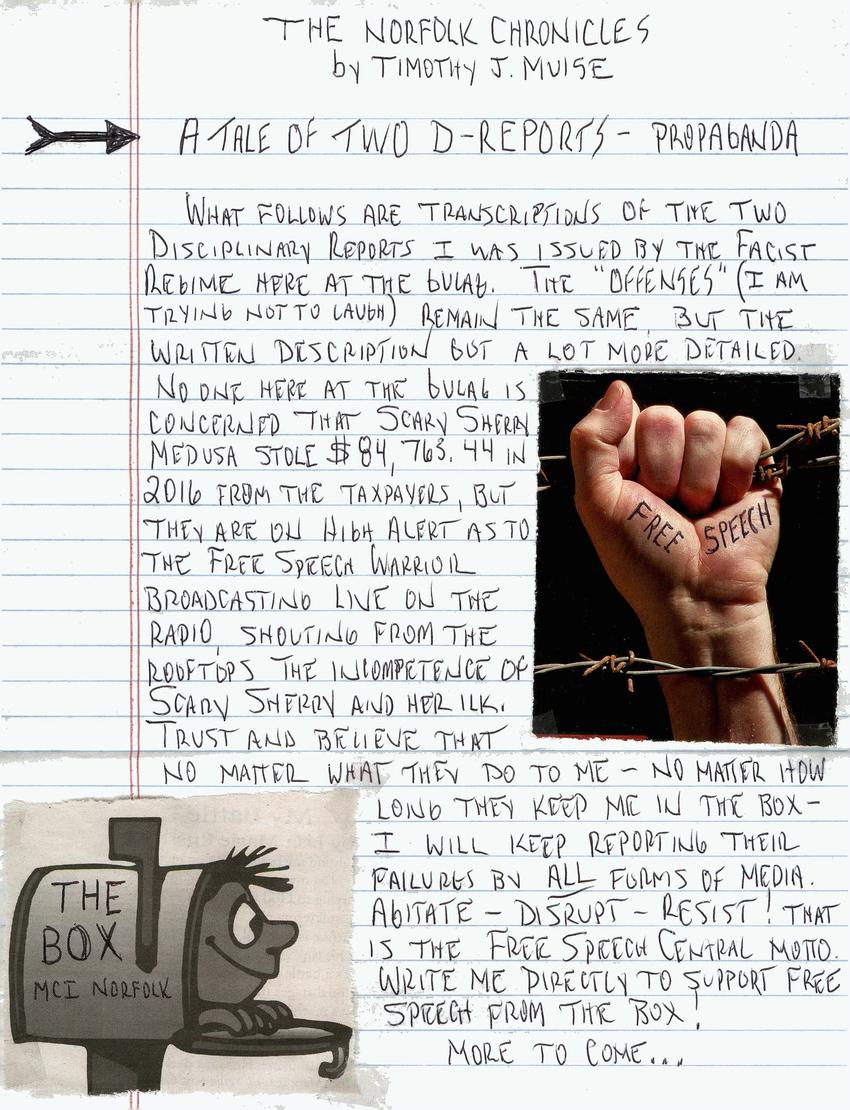 THE NORFOLK CHRONICLES
by TIMOTHY J. MUISE
A TALE OF TWO D-REPORTS - PROPAGANDA
WHAT FOLLOWS ARE TRANSCRIPTIONS OF THE TWO
DISCIPLINARY REPORTS I WAS ISSUED BY THE FACIST
REGIME HERE AT THE GULAG. THE "OFFENSES" (I AM
TRYING NOT TO LAUGH) REMAIN THE SAME, BUT THE
WRITTEN DESCRIPTION GOT A LOT MORE DETAILED.
NO ONE HERE AT THE GULAG IS
CONCERNED THAT SCARY SHERRY
MEDUSA STOLE $84,763.44 IN
2016 FROM THE TAXPAYERS, BUT
THEY ARE ON HIGH ALERT AS TO
THE FREE SPEECH WARRIOR
BROADCASTING LIVE ON THE
RADIO, SHOUTING FROM THE
ROOFTOPS THE INCOMPETENCE OF
SCARY SHERRY AND HER ILK.
TRUST AND BELIEVE THAT
NO MATTER WHAT THEY DO TO ME - NO MATTER HOW
LONG THEY KEEP ME IN THE BOX -
I WILL KEEP REPORTING THEIR
FAILURES BY ALL FORMS OF MEDIA.
AGITATE - DISRUPT - RESIST! THAT
IS THE FREE SPEECH CENTRAL MOTTO.
WRITE ME DIRECTLY TO SUPPORT FREE
SPEECH FROM THE BOX!
MORE TO COME...
FREE SPEECH
THE
BOX
MCI NORFOLK